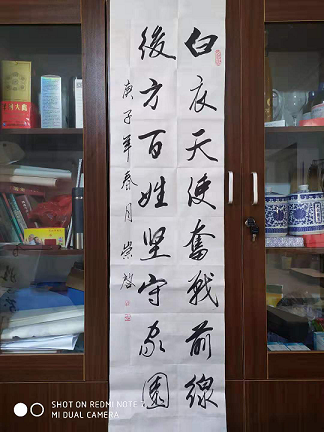 白衣天使奮戰前線
後方百姓坚守家園
庚子年春月崇啓
SHOT ON REDMI NOTE 7
MI DUAL CAMERA